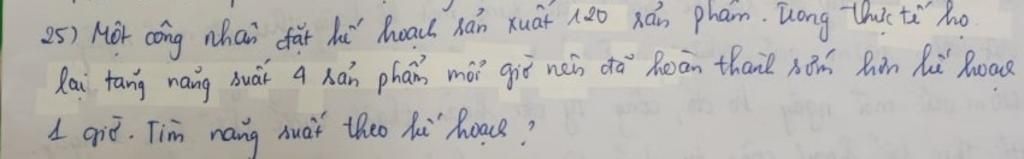 25) Một công nhân đặt kế hoạch sản xuất 120 sản phẩm. Trong thực tế họ
lại tăng năng suất 4 sản phẩm mỗi giờ nên đã hoàn thành sớm hơn kế hoạch
1 giờ. Tìm năng suất theo kế hoạch?